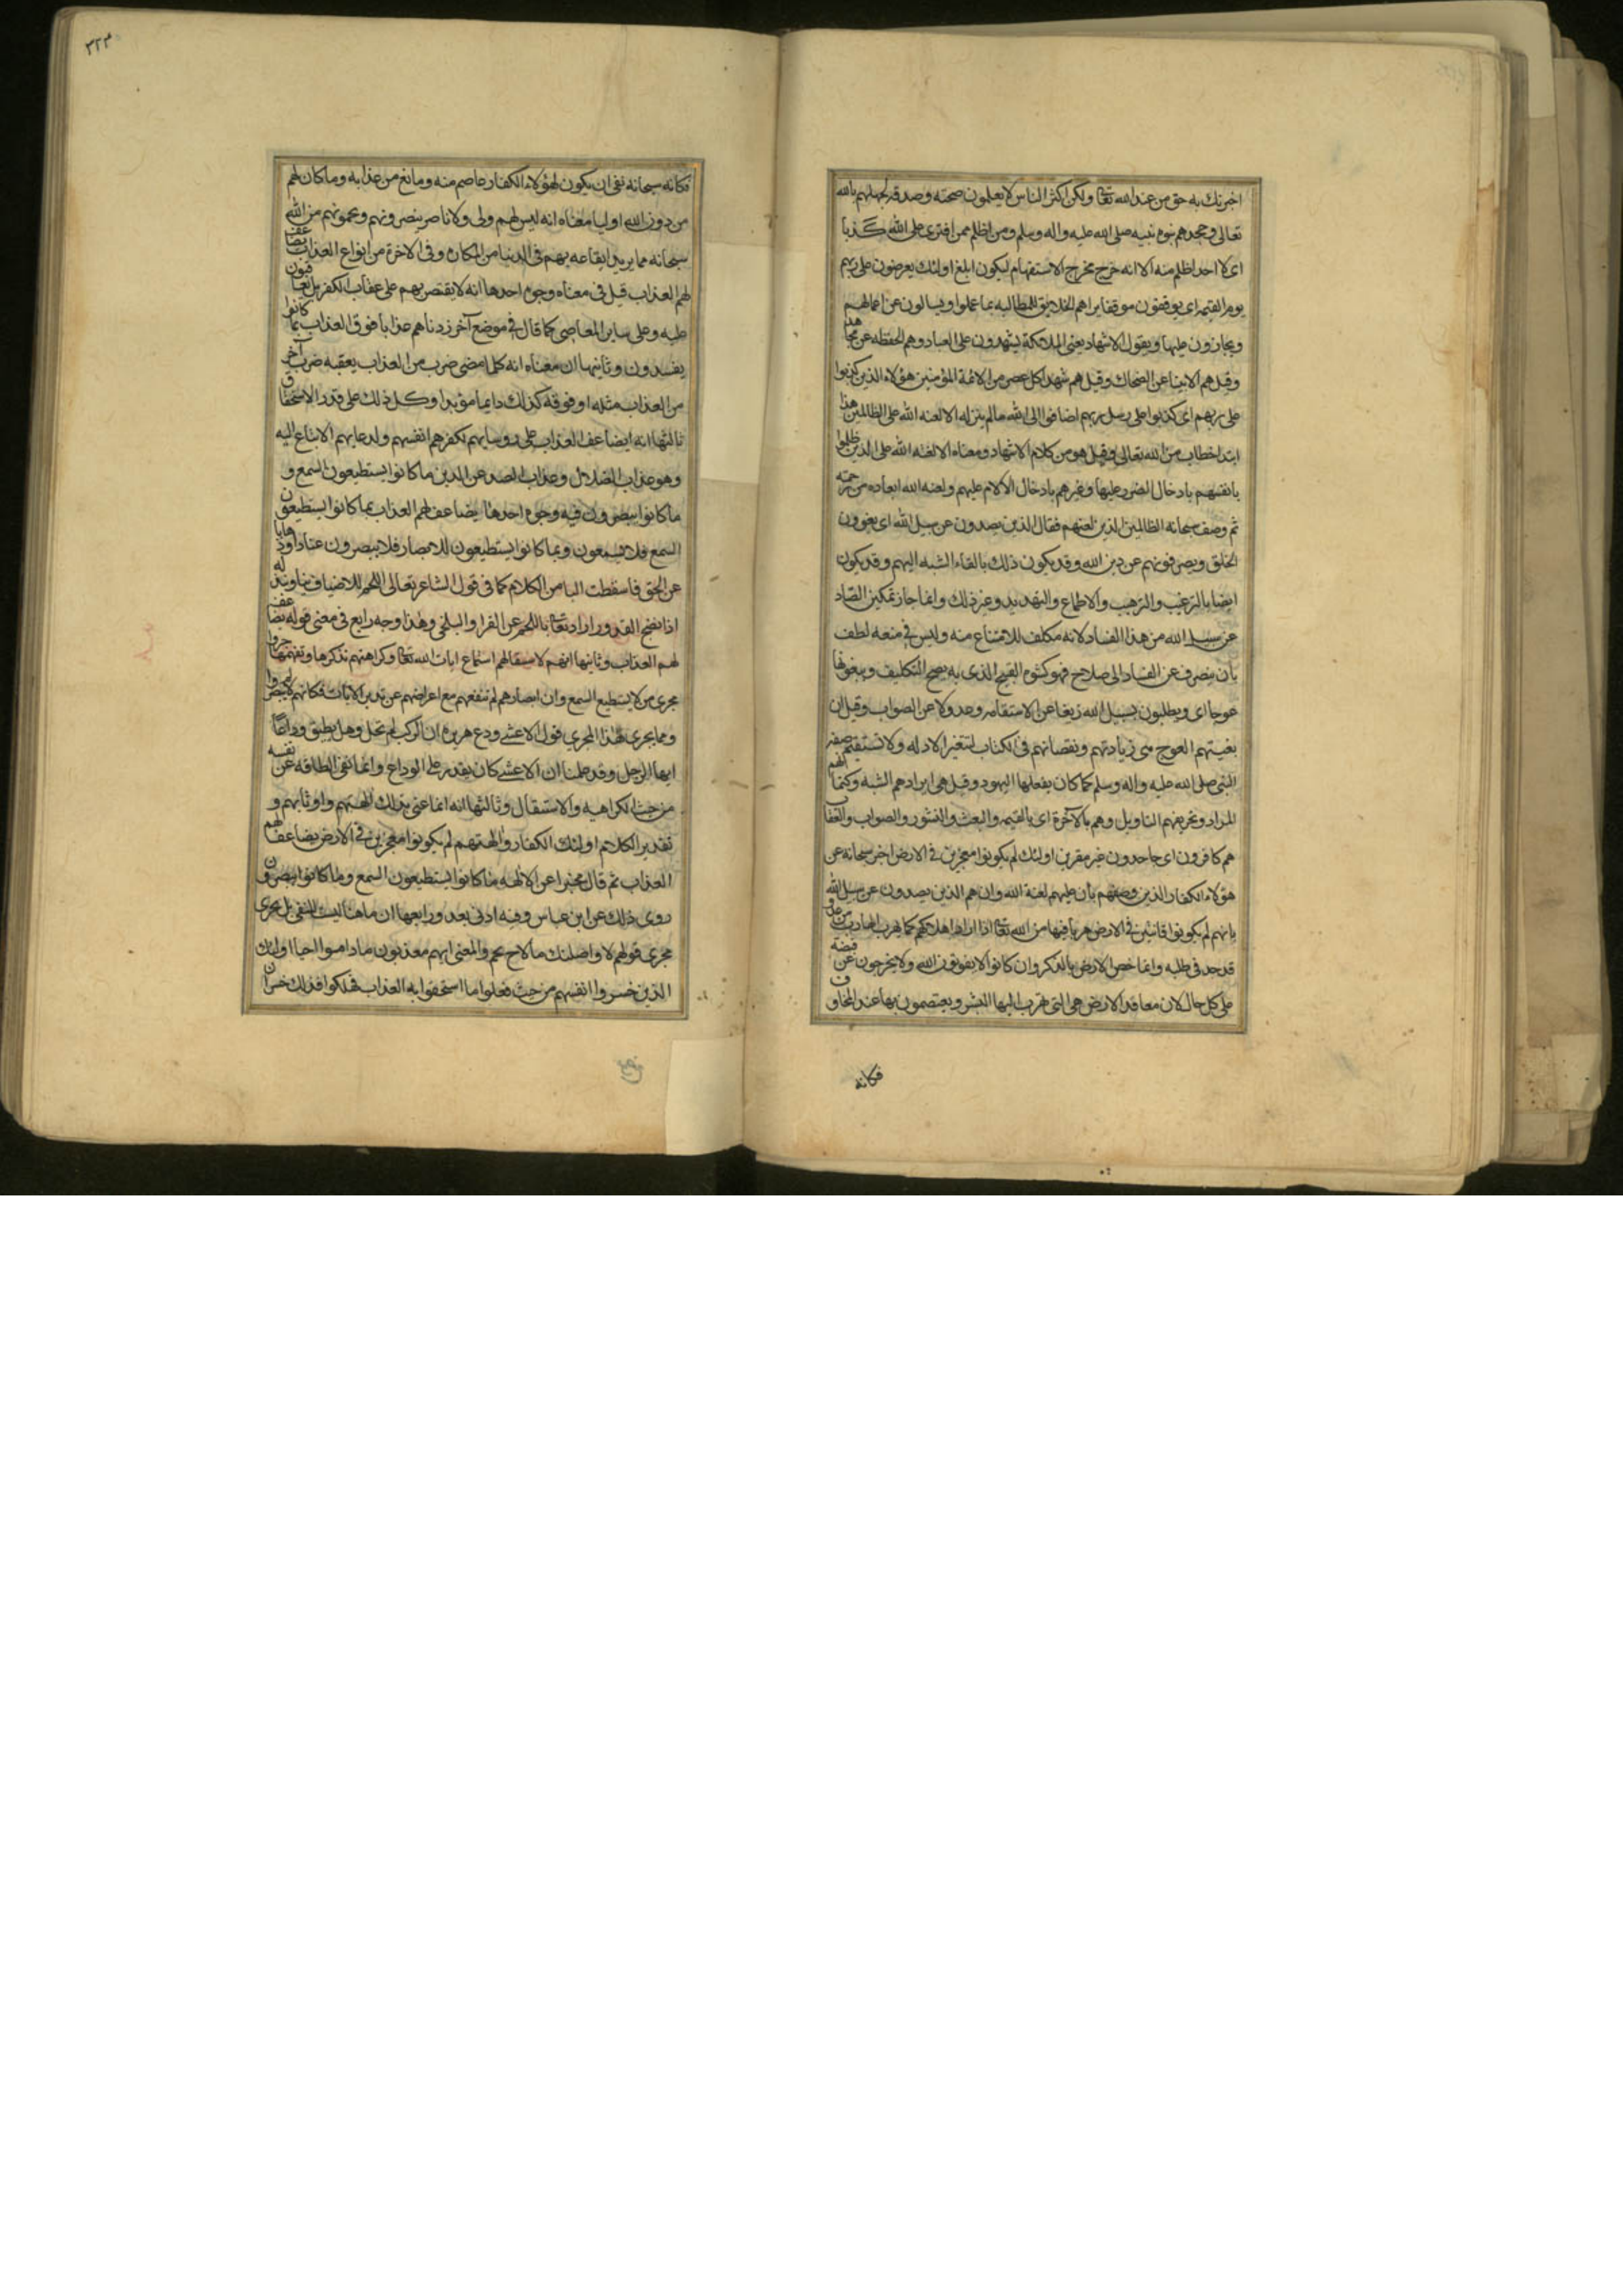 اخبرتك به حق من عند الله تعا ولكن اكثر الناس لا يعلمون صحته وصدقه لجهلهم بالله
تعالى وجحدهم نبوه نبيه صلى الله عليه واله وسلم ومن اظلم ممن افترى على الله كذبا
اى لا احد اظلم منه الا انه خرج مخرج الاستفهام ليكون ابلغ اولئك يعرضون على ربهم
يوم القيمه اى يوقفون موقفا يراهم الخلايق للمطالبه بما عملوا ويسالون عن اعمالهم
ويجازون عليها ويقول الاشهاد يعنى الملائكة يشهدون على العباد وهم الحفظه عن مجاهد
وقيل هم الانبيا عن الضحاك وقيل هم شهدا كل عصر من الائمة المؤمنين هؤلاء الذين كذبوا
على ربهم اى كذبوا على رسل ربهم اضافوا الى الله مالم ينزله الا لعنه الله على الظالمين هذا
ابتدا خطاب من الله تعالى وقيل هو من كلام الاشهاد ومعناه الا لعنه الله على الذين ظلموا
بانفسهم بادخال الضرر عليها وغيرهم بادخال الالام عليهم ولعنه الله ابعاده من رحمته
ثم وصف سبحانه الظالمين الذين لعنهم فقال الذين يصدون عن سبيل الله اى يغوون
الخلق ويصرفونهم عن دين الله وقد يكون ذلك بالقاء الشبه اليهم وقد يكون
ايضا بالترغيب والترهيب والاطماع والتهديد وغير ذلك وانما جاز تمكين الصاد
عن سبيل الله من هذا الفساد لانه مكلف للامتناع منه وليس فى منعه لطف
بان ينصرف عن الفساد الى صلاح فهو كشهوه القبيح الذى به يصح التكليف ويبغونها
عوجا اى ويطلبون لسبيل الله زيغا عن الاستقامه وعدولا عن الصواب وقيل ان
بغيتهم العوج هى زيادتهم ونقصانهم فى الكتاب لتتغير الادله ولا تستقيم صفه
النبى صلى الله عليه واله وسلم كما كان يفعلها اليهود وقيل هى ايرادهم الشبه وكتمانهم
المراد وتحريفهم التاويل وهم بالآخرة اى بالقيمه والبعث والنشور والثواب والعقاب
هم كافرون اى جاحدون غير مقرين اولئك لم يكونوا معجزين فى الارض اخبر سبحانه عن
هؤلاء الكفار الذين وصفهم بان عليهم لعنة الله وانهم الذين يصدون عن سبيل الله
بانهم لم يكونوا فائتين فى الارض هربا فيها من الله تعا اذا اراد اهلاكهم كما يهرب الهارب من عدو
قد جد فى طلبه وانما خص الارض بالذكر وان كانوا لا يفوتون الله ولا يخرجون عن قبضته
على كل حال لان معاقد الارض هى التى يهرب اليها البشر ويعتصمون بها عند المخاوف
فكانه
٣٢٣
فكانه سبحانه نفى ان يكون لهؤلاء الكفار عاصم منه ومانع من عذابه وما كان لهم
من دون الله اوليا معناه انه ليس لهم ولى ولا ناصر ينصرونهم ويحمونهم من الله
سبحانه مما يريد ايقاعه بهم فى الدنيا من المكاره وفى الاخرة من انواع العذاب يضاعف
لهم العذاب قيل فى معناه وجوه احدها انه لا يقتصر بهم على عقاب الكفر بل يعاقبون
عليه وعلى ساير المعاصى كما قال فى موضع آخر زدناهم عذابا فوق العذاب بما كانوا
يفسدون وثانيها ان معناه انه كلما مضى ضرب من العذاب يعقبه ضرب آخر
من العذاب مثله او فوقه كذلك دايما مؤبدا وكل ذلك على قدر الاستحقاق
ثالثها انه ايضاعف العذاب على روسايهم لكفرهم انفسهم ولدعايهم الاتباع اليه
وهو عذاب الضلال وعذاب الصد عن الدين ما كانوا يستطيعون السمع و
ما كانوا يبصرون فيه وجوه احدها يضاعف لهم العذاب بما كانوا يستطيعون
السمع فلا يسمعون وبما كانوا يستطيعون للابصار فلا يبصرون عنادا وذهابا
عن الحق فاسقطت البا من الكلام كما فى قول الشاعر تعالى اللحم للاضياف نيا ونبذله
اذا نضج القدور اراد تعا باللحم عن الفرا والبلخى وهذا وجه رابع فى معنى قوله يضاعف
لهم العذاب وثانيها انهم لاستثقالهم استماع ايات الله تعا وكراهتهم تذكرها وتفهمها جروا
مجرى من لا يستطيع السمع وان ابصارهم لم تنفعهم مع اعراضهم عن تدبر الايات فكانهم لم يبصروا
ومما يجرى هذا المجرى قول الاعشى ودع هريره ان الركب لم تحل وهل يطيق وداعًا
ايها الرجل وقد علمنا ان الاعشى كان يقدر على الوداع وانما نفى الطاقه عن نفسه
من حيث الكراهيه والاستثقال وثالثها انه انما عنى بذلك آلهتهم واوثانهم و
تقدير الكلام اولئك الكفار وآلهتهم لم يكونوا معجزين فى الارض يضاعف لهم
العذاب ثم قال مخبرا عن الآلهه ما كانوا يستطيعون السمع وما كانوا يبصرون
روى ذلك عن ابن عباس وفيه ادنى بعد ورابعها ان ما هنا ليست للنفى بل يجرى
مجرى قولهم لاواصلنك ما لاح نجم والمعنى انهم معذبون ما داموا احيا اولئك
الذين خسروا انفسهم من حيث فعلوا ما استحقوا به العذاب فهلكوا فذلك خسران